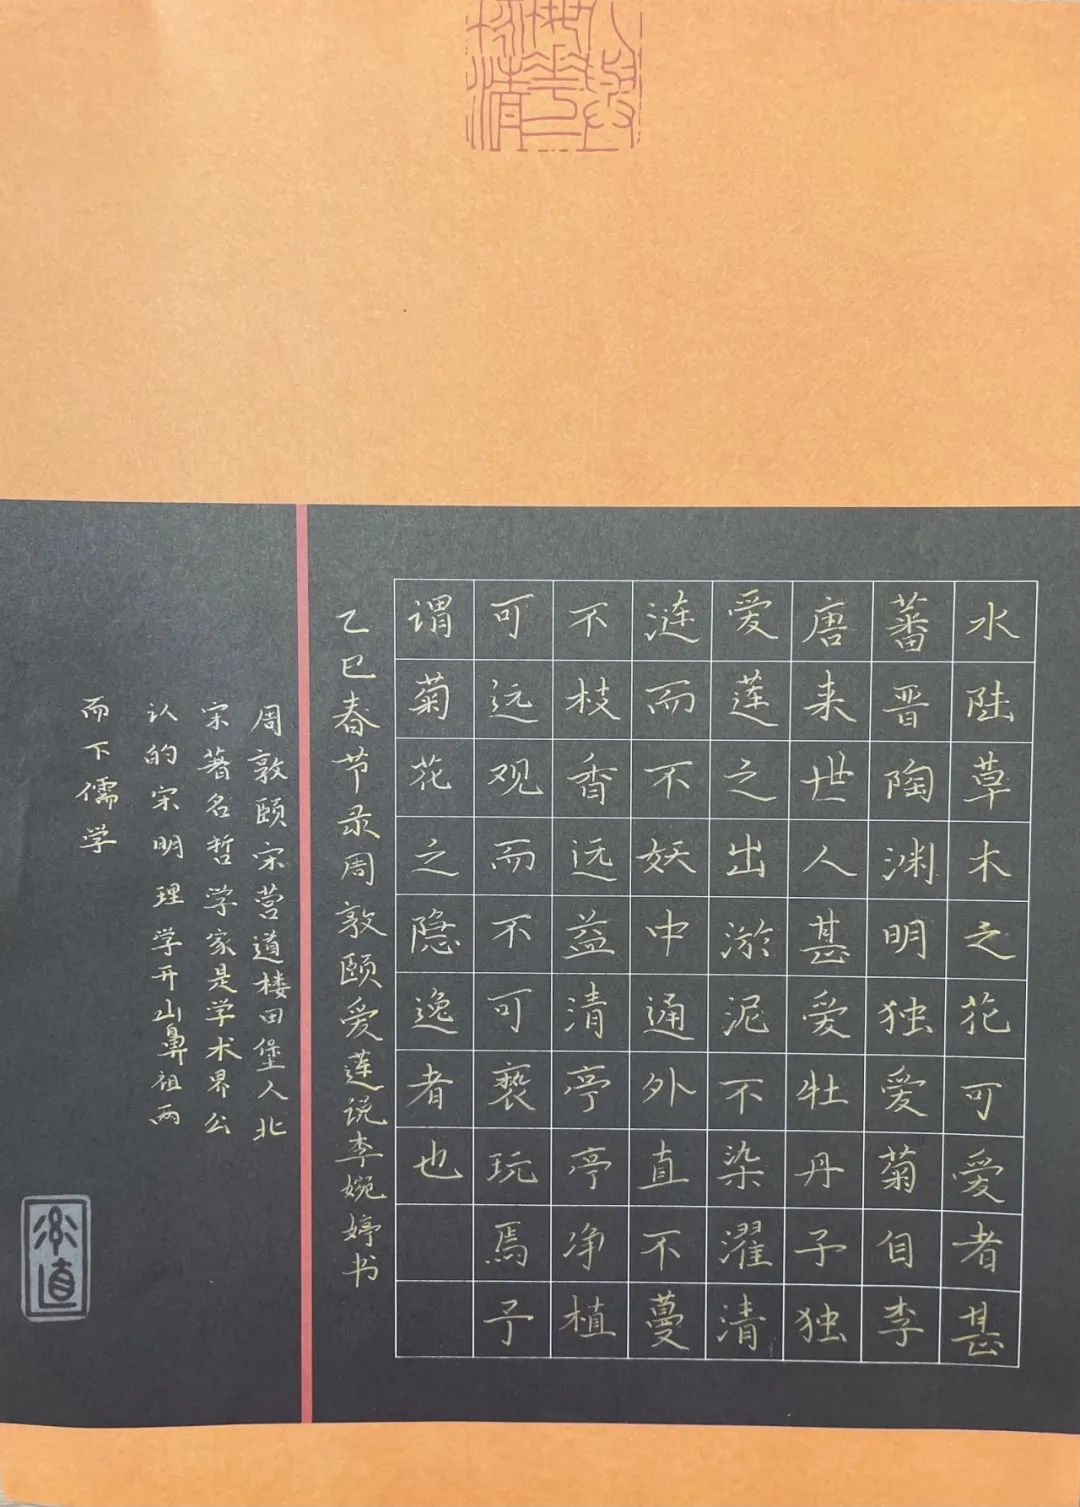 水陆草木之花可爱者甚
蕃晋陶渊明独爱菊自李
唐来世人甚爱牡丹予独
爱莲之出淤泥不染濯清
涟而不妖中通外直不蔓
不枝香远益清亭亭净植
可远观而不可亵玩焉予
谓菊花之隐逸者也
乙巳春节录周敦颐爱莲说李婉婷书
周敦颐宋营道楼田堡人北
宋著名哲学家是学术界公
认的宋明理学开山鼻祖两
而下儒学